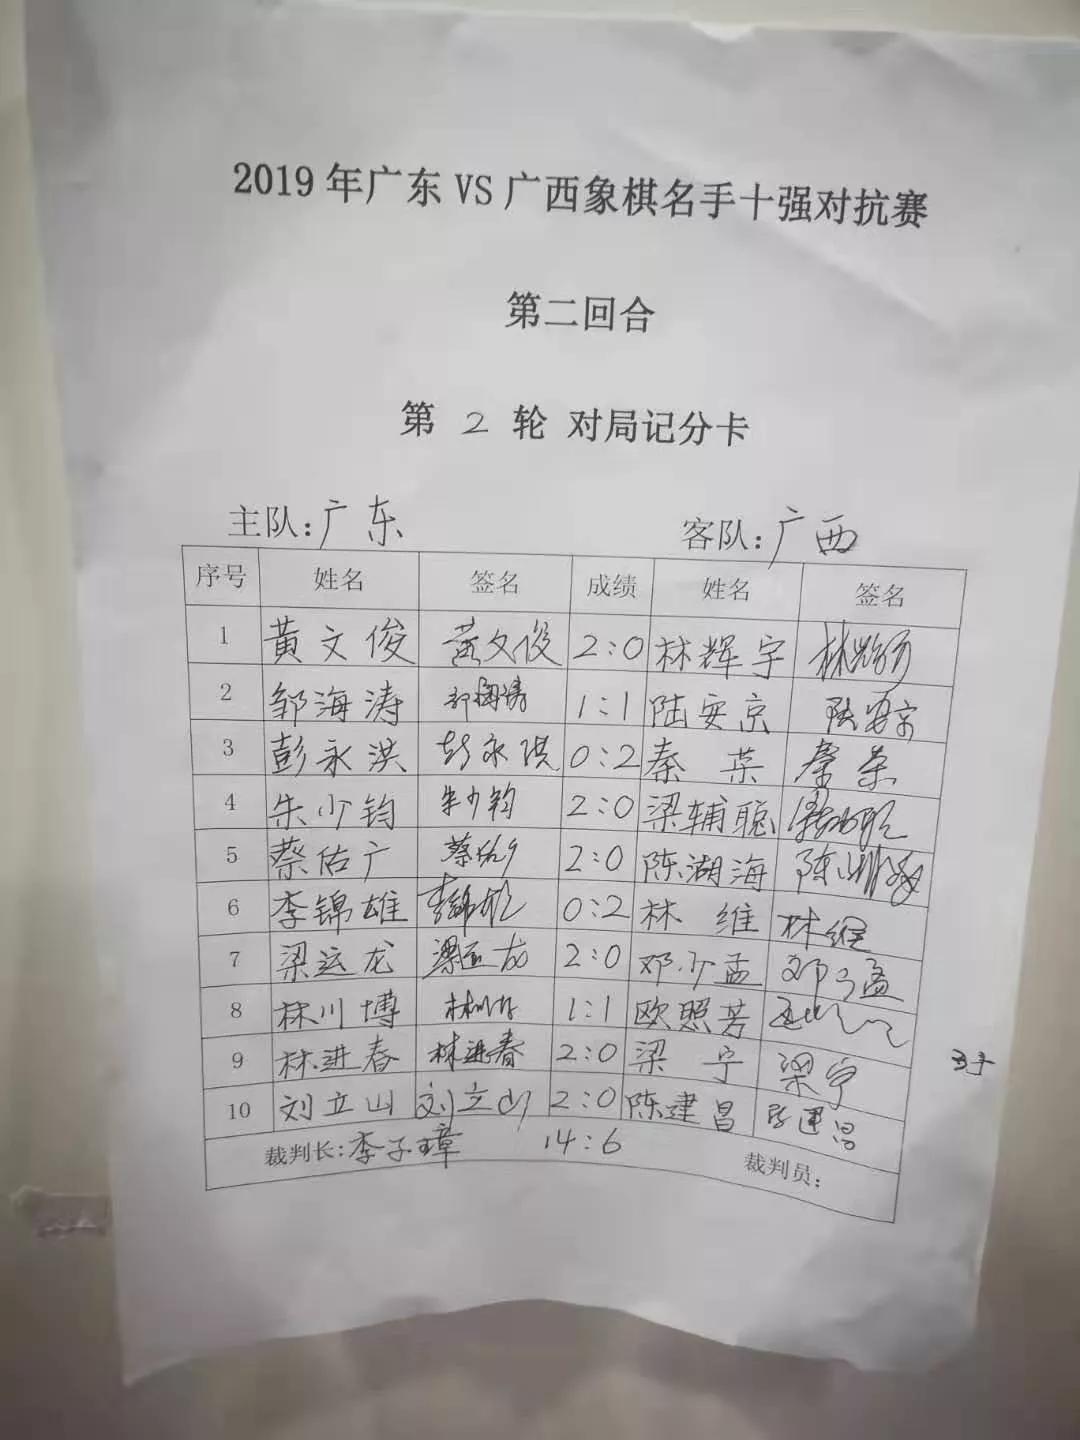 2019年广东VS广西象棋名手十强对抗赛
第二回合
第 2 轮 对局记分卡
主队:广东 客队:广西
序号 姓名 签名 成绩 姓名 签名
1 黄文俊 黄文俊 2:0 林辉宇
2 邹海涛 邹海涛 1:1 陆安京 陆安京
3 彭永洪 彭永洪 0:2 秦荣 秦荣
4 朱少钧 朱少钧 2:0 梁辅聪
5 蔡佑广 蔡佑广 2:0 陈湖海 陈湖海
6 李锦雄 李锦雄 0:2 林维 林维
7 梁运龙 梁运龙 2:0 邓少孟 邓少孟
8 林川博 林川博 1:1 欧照芳
9 林进春 林进春 2:0 梁宁 梁宁
10 刘立山 刘立山 2:0 陈建昌 陈建昌
裁判长:李子璋 14:6 裁判员: